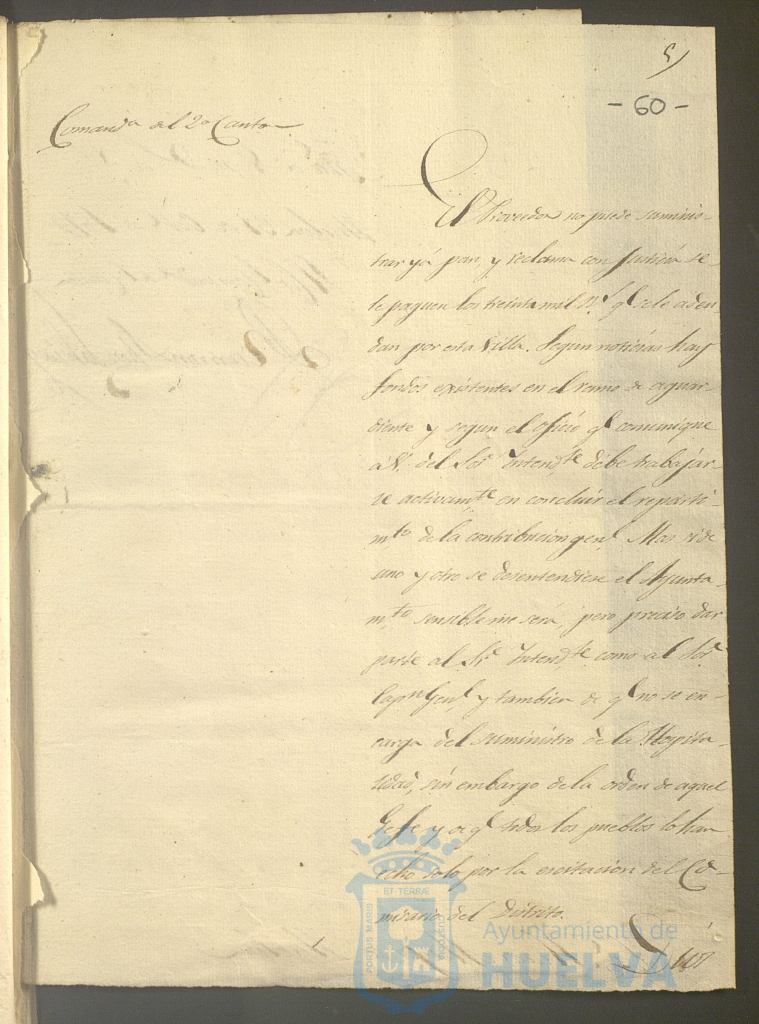 5)
- 60 -
Comand.ª del 2º Canton
El Proveedor no puede suminis-
trar yá pan y reclama con justicia se
le paguen los treinta mil r.s q.e se le adeu-
dan por esta Villa. Segun noticias hay
fondos existentes en el ramo de aguar-
diente y segun el oficio q.e comuniqué
á V. del Sor. Intend.te debe trabajar-
se activam.te en concluir el reparti-
m.to de la contribucion gen.l Mas si de
uno y otro se desentendiese el Ayunta-
m.to sensible me será, pero preciso dar
parte al Sr. Intend.te como al Sor.
Cap.n Gen.l y tambien de q.e no se en-
carga del suministro de la Hospita-
lidad, sin embargo de la orden de aquel
Gefe y de q.e todos los pueblos lo han
echo solo por la escitacion del Co-
misario del Distrito.
Dios
PORTUS MARIS
ET TERRÆ
CUSTODIA
Ayuntamiento de
HUELVA